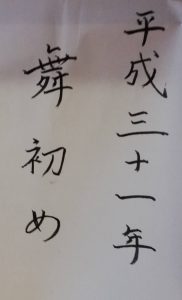 平成三十一年
舞初め